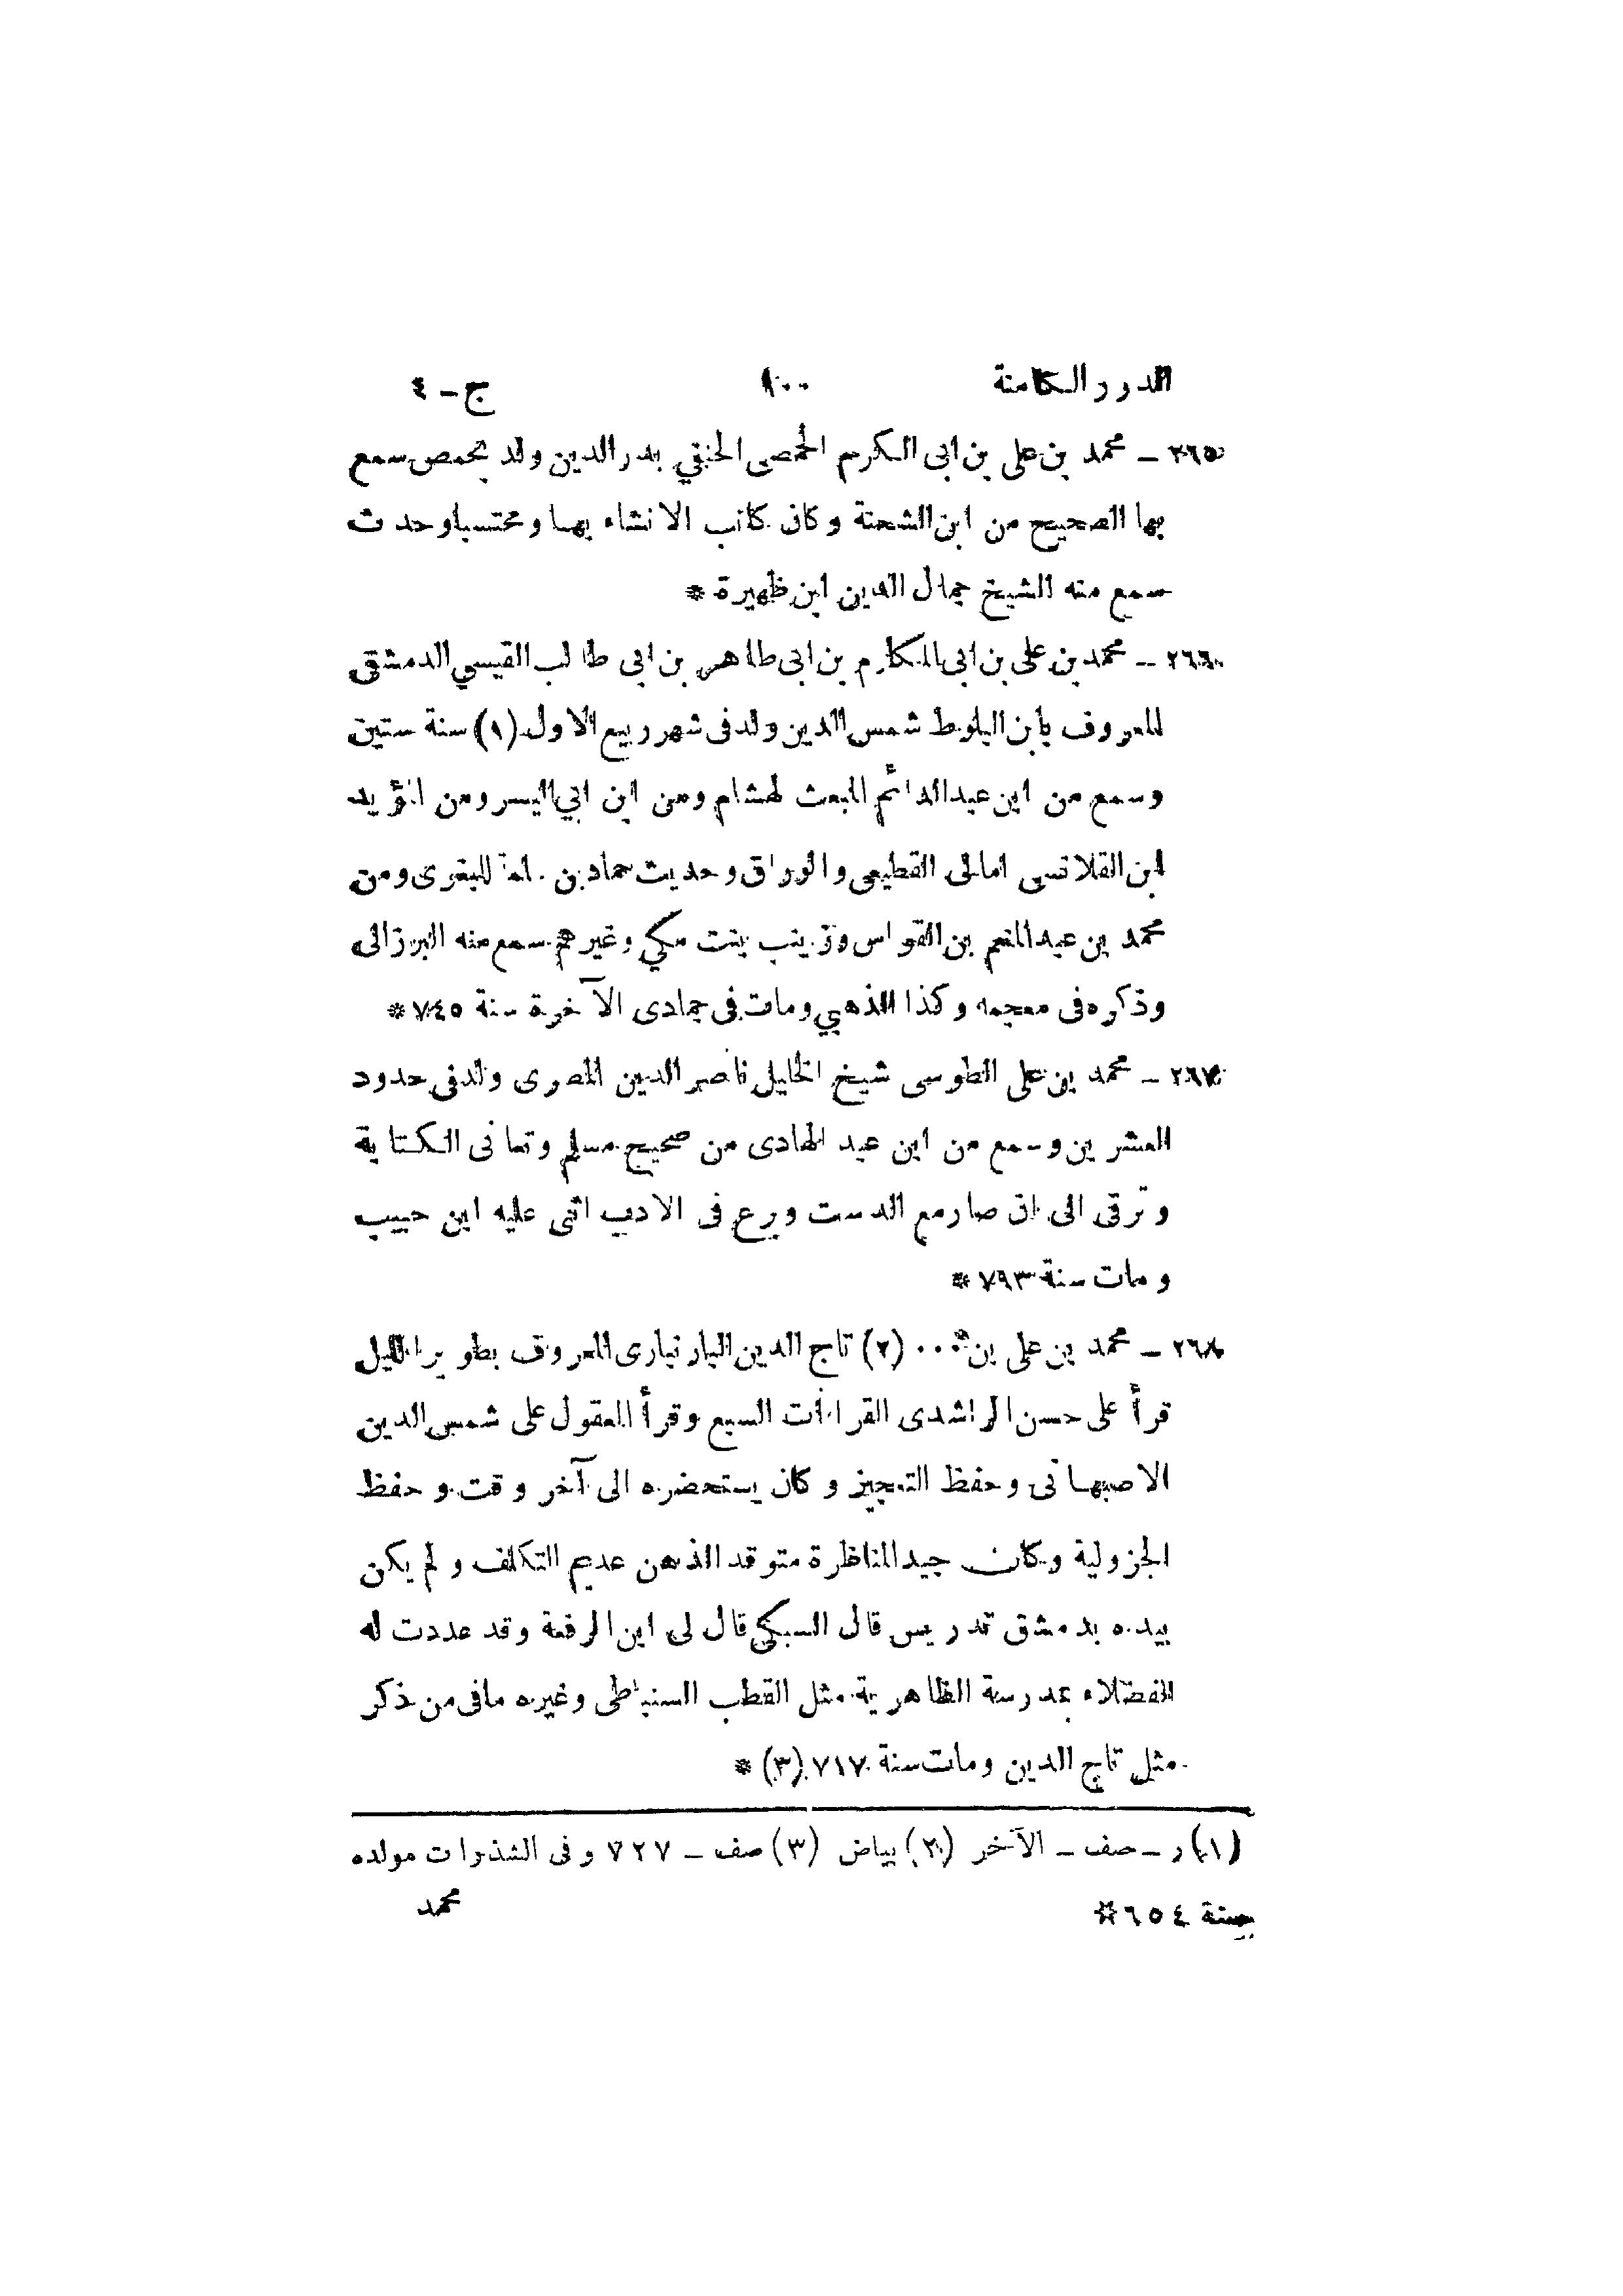 الدرر الكامنة ١٠٠ ج - ٤
٢٦٥ - محمد بن على بن ابى الكرم الحمصى الحنفي بدر الدين ولد بحمص سمع
بها الصحيح من ابن الشحنة وكان كاتب الانشاء بها ومحتسبا وحدث
سمع منه الشيخ جمال الدين ابن ظهيرة *
٢٦٦ - محمد بن على بن ابى المكارم بن ابى طاهر بن ابى طالب القيسي الدمشقى
المعروف بابن البلوط شمس الدين ولد فى شهر ربيع الاول (١) سنة ستين
وسمع من ابن عبد الدائم المبعث لهشام ومن ابن ابي اليسر ومن المؤيد
ابن القلانسى امالى القطيعى والوراق وحديث حماد بن للبغوى ومن
محمد بن عبد المنعم بن القواس وزينب بنت مكي وغيرهم سمع منه البرزالى
وذكره فى معجمه وكذا الذهبي ومات فى جمادى الآخرة سنة ٧٤٥ *
٢٦٧ - محمد بن على الطوسى شيخ الخليل ناصر الدين المصرى ولد فى حدود
العشرين وسمع من ابن عبد الهادى من صحيح مسلم وتعانى الكتابة
وترقى الى ان صار مع الدست وبرع فى الادب اثنى عليه ابن حبيب
ومات سنة ٧٩٣ *
٢٦٨ - محمد بن على بن ٠٠٠ (٢) تاج الدين البارنبارى المعروف بطوير الليل
قرأ على حسن الراشدى القراآت السبع وقرأ المعقول على شمس الدين
الاصبهانى وحفظ التعجيز وكان يستحضره الى آخر وقت وحفظ
الجزولية وكان جيد المناظرة متوقد الذهن عديم التكلف ولم يكن
بيده بدمشق تدريس قال السبكي قال لى ابن الرفعة وقد عددت له
الفضلاء بمدرسة الظاهرية مثل القطب السنباطى وغيره مافى من ذكر
مثل تاج الدين ومات سنة ٧١٧ (٣) *
(١) ر - صف - الآخر (٢) بياض (٣) صف - ٧٢٧ وفى الشذرات مولده
سنة ٦٥٤ *
محمد